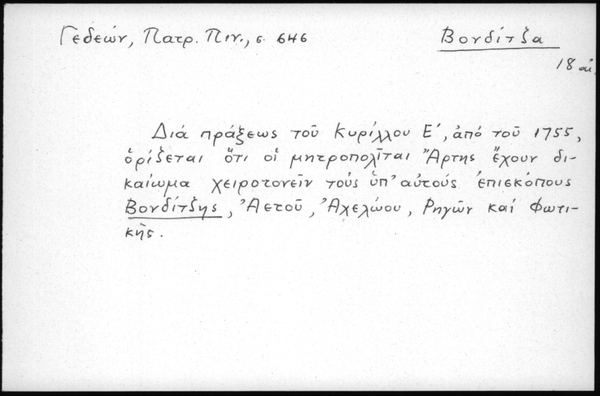 Γεδεών, Πατρ. Πιν., σ. 646
Βονδίτζα
18 αἰ.
Διά πράξεως τοῦ Κυρίλλου Ε΄, ἀπό τοῦ 1755,
ὁρίζεται ὅτι οἱ μητροπολῖται Ἄρτης ἔχουν δι-
καίωμα χειροτονεῖν τούς ὑπ' αὐτούς ἐπισκόπους
Βονδίτζης, Ἀετοῦ, Ἀχελώου, Ρηγῶν καί Φωτι-
κῆς.